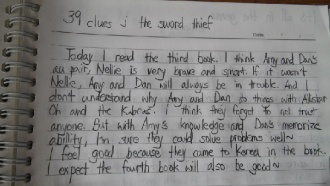 39 clues ; the sword thief
Date
Today I read the third book. I think Amy and Dan's
au pair, Nellie is very brave and smart. If it wasn't
Nellie, Amy and Dan will always be in trouble. And I
don't understand why Amy and Dan do things with Alistair
Oh and the Kabras. I think they forgot to not trust
anyone. But with Amy's knowledge and Dan's memorize
ability, I'm sure they could solve problems well~
I feel good because they came to Korea in the book.
I expect the fourth book will also be good~